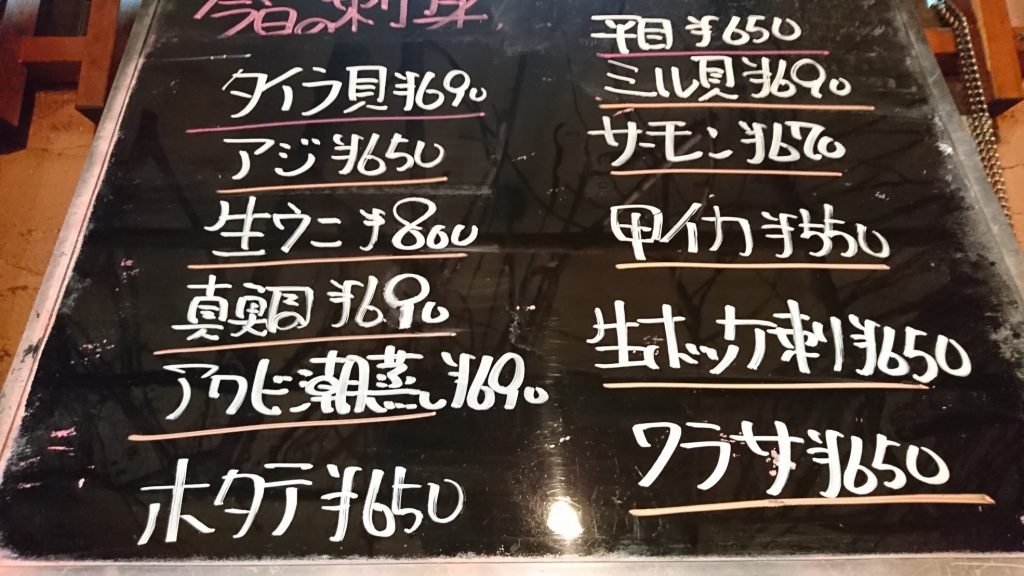 今日の刺身
タイラ貝¥690
アジ¥650
生ウニ¥800
真鯛¥690
アワビ潮蒸し¥690
ホタテ¥650
平目¥650
ミル貝¥690
サーモン¥670
甲イカ¥550
生ホッカ刺¥650
ワラサ¥650